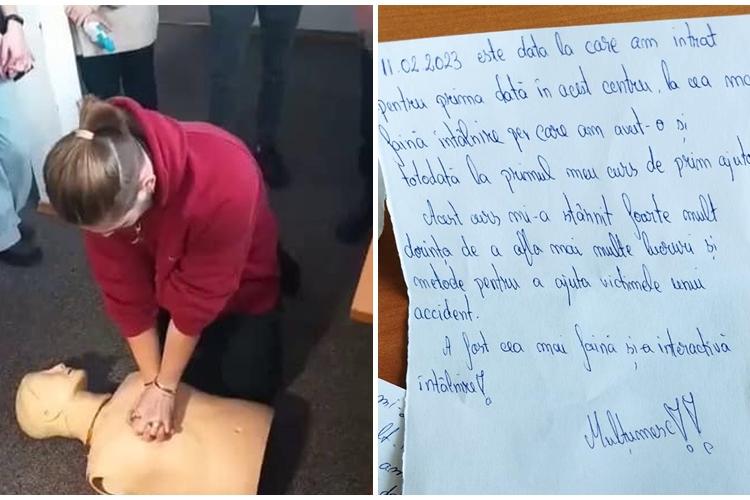 11.02.2023 este data la care am intrat
pentru prima dată în acest centru, la cea mai
faină întâlnire per care am avut-o și
totodată la primul meu curs de prim ajutor
Acest curs mi-a stârnit foarte mult
dorința de a afla mai multe lucruri și
metode pentru a ajuta victimele unui
accident.
A fost cea mai faină și-a interactivă
întâlnire!
Mulțumesc!!